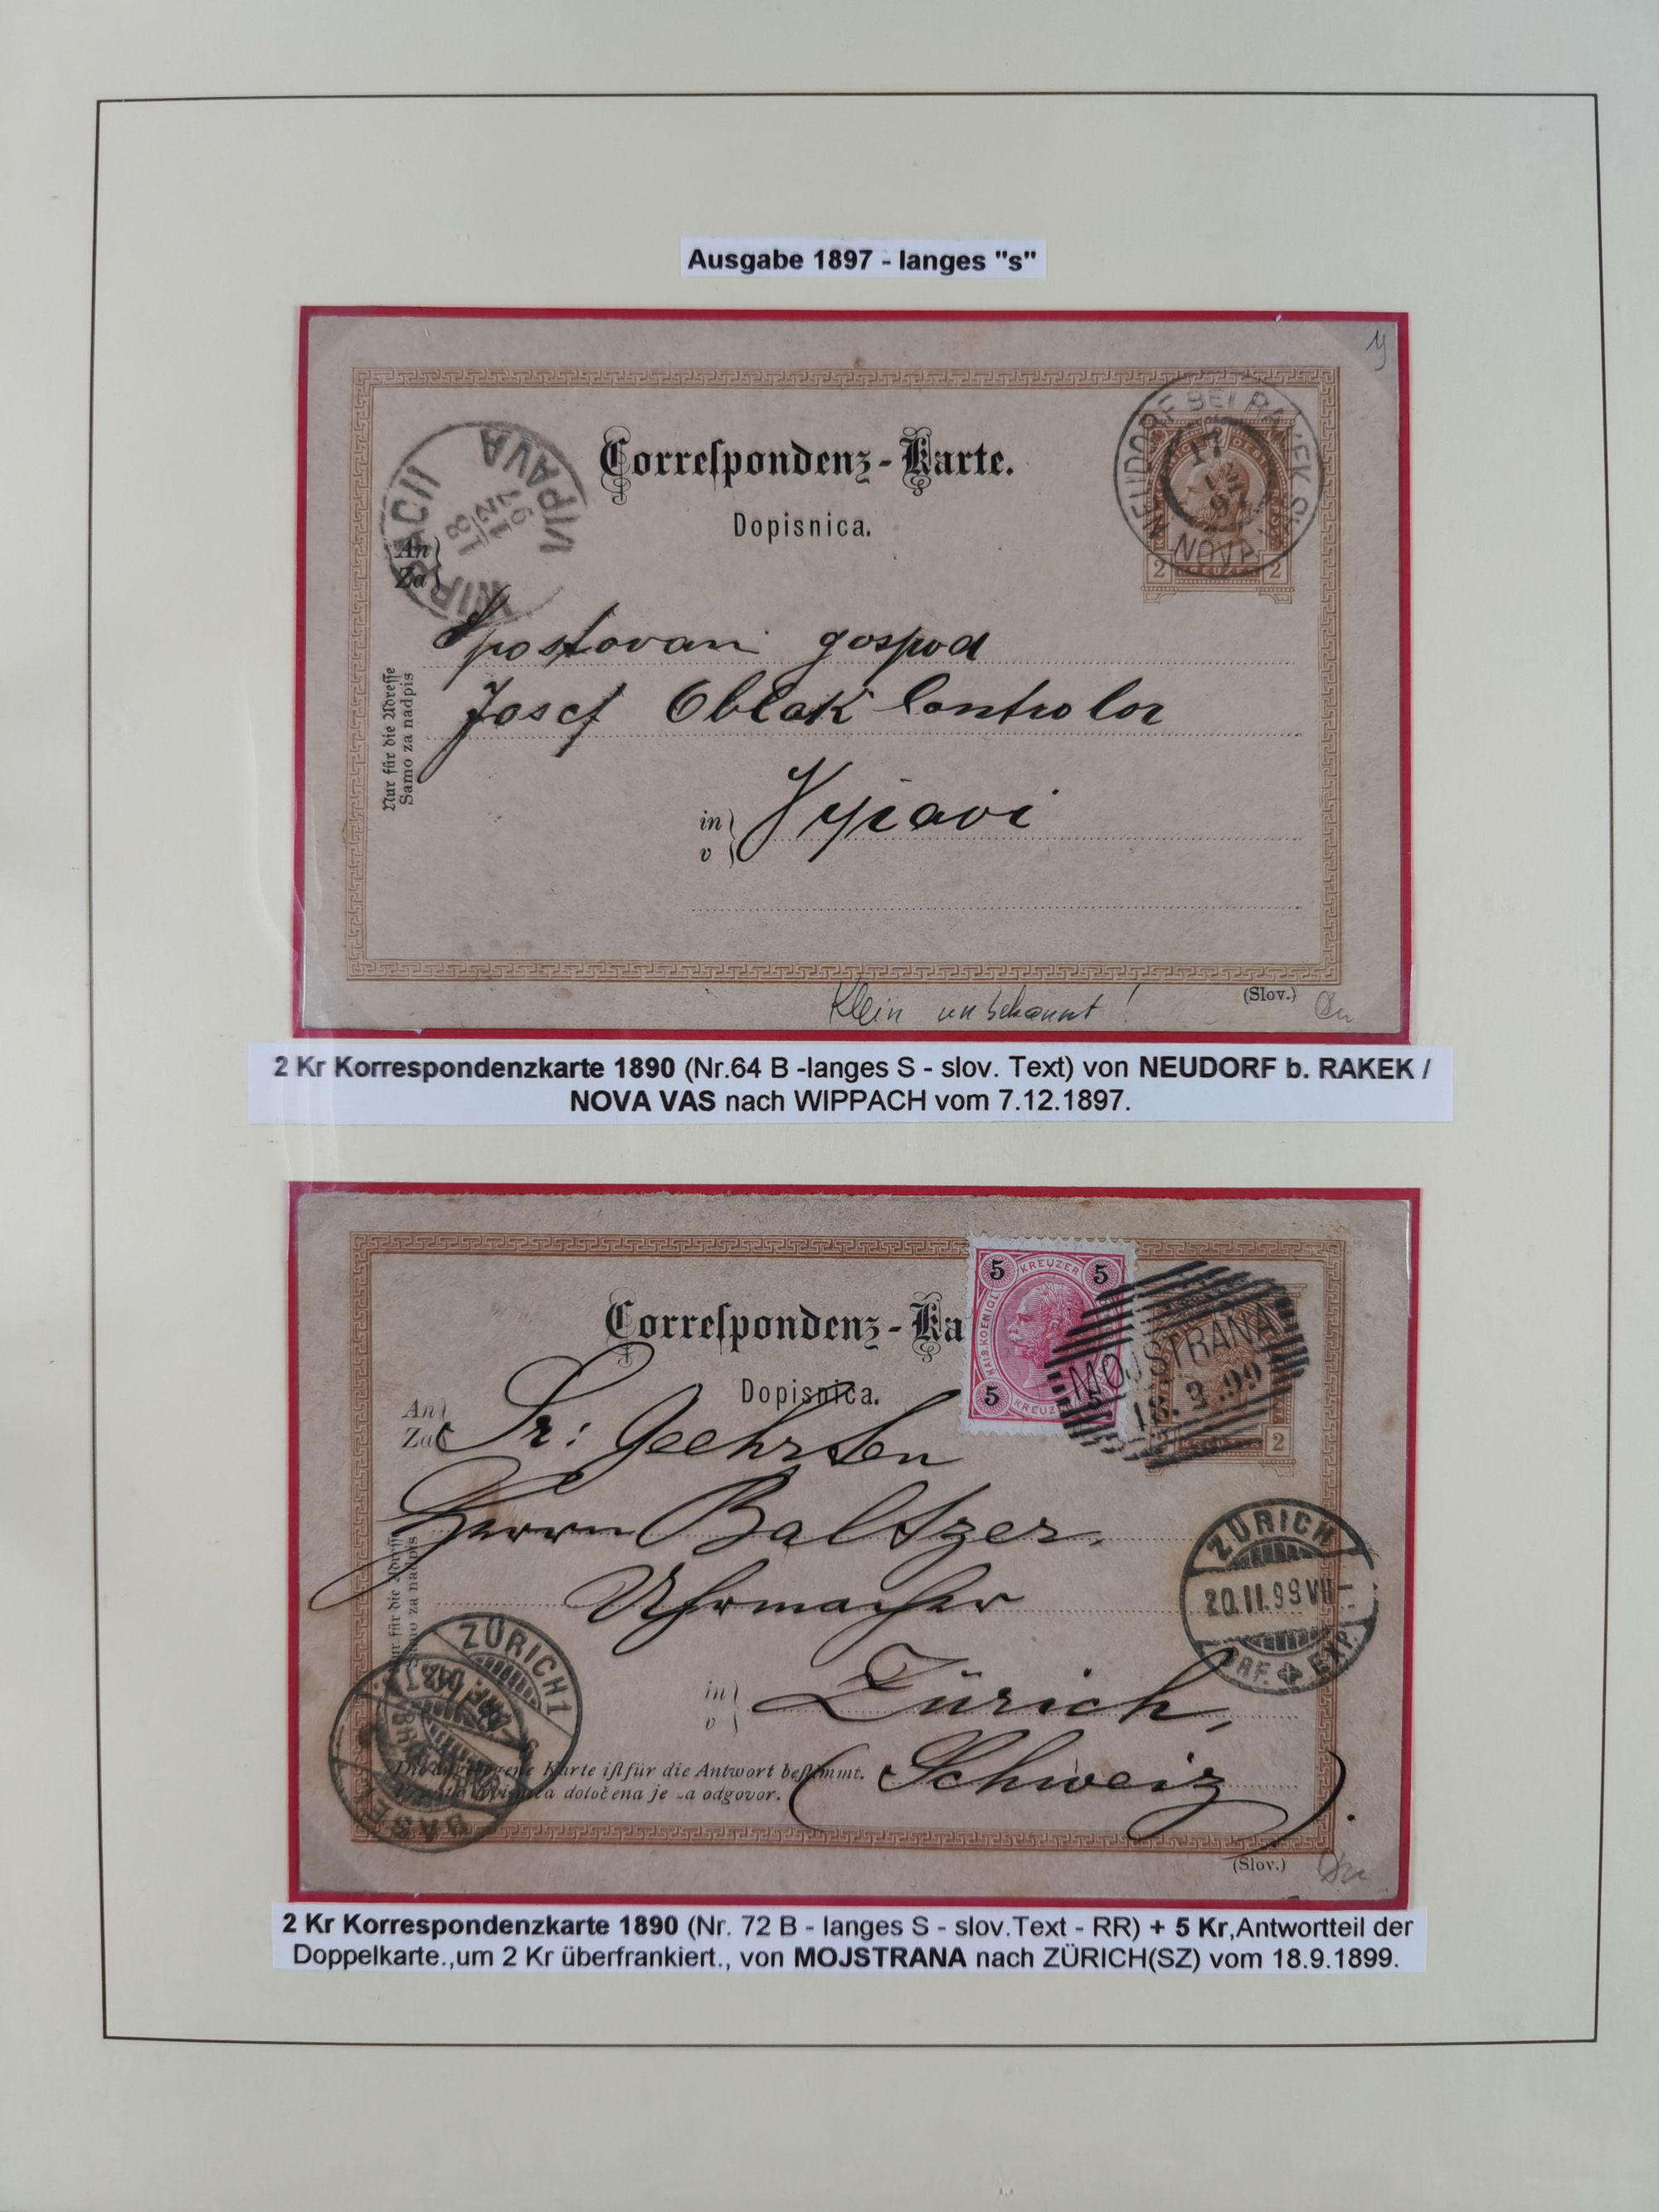 Ausgabe 1897 - langes "s"
y
Correſpondenz-Karte.
Dopisnica.
NEUDORF BEI RAKEK
17
12
97
NOVA
2 KREUZER 2
WIPPACH
18
12
97
VIPAVA
An
Za
Spostovani gospod
Josef Oblak Controlor
in
v
Vipavi
Nur für die Adreſſe
Samo za nadpis
(Slov.)
Klein unbekannt!
2 Kr Korrespondenzkarte 1890 (Nr.64 B -langes S - slov. Text) von NEUDORF b. RAKEK /
NOVA VAS nach WIPPACH vom 7.12.1897.
Correſpondenz-Ka
Dopisnica.
5 KREUZER 5
KAIS. KOENIGL
5 KREUZ
MOJSTRANA
18. 9 .99
2
An
Za
Sr: Geehrten
Herrn Baltzer,
Uhrmacher
in
v
Zürich,
(Schweiz).
Nur für die Adreſſe
Samo za nadpis
ZÜRICH
20.II.99 VII-
BRF. EXP.
ZÜRICH 1
Die angebogene Karte iſt für die Antwort beſtimmt.
dopisnica določena je za odgovor.
(Slov.)
2 Kr Korrespondenzkarte 1890 (Nr. 72 B - langes S - slov.Text - RR) + 5 Kr,Antwortteil der
Doppelkarte.,um 2 Kr überfrankiert., von MOJSTRANA nach ZÜRICH(SZ) vom 18.9.1899.